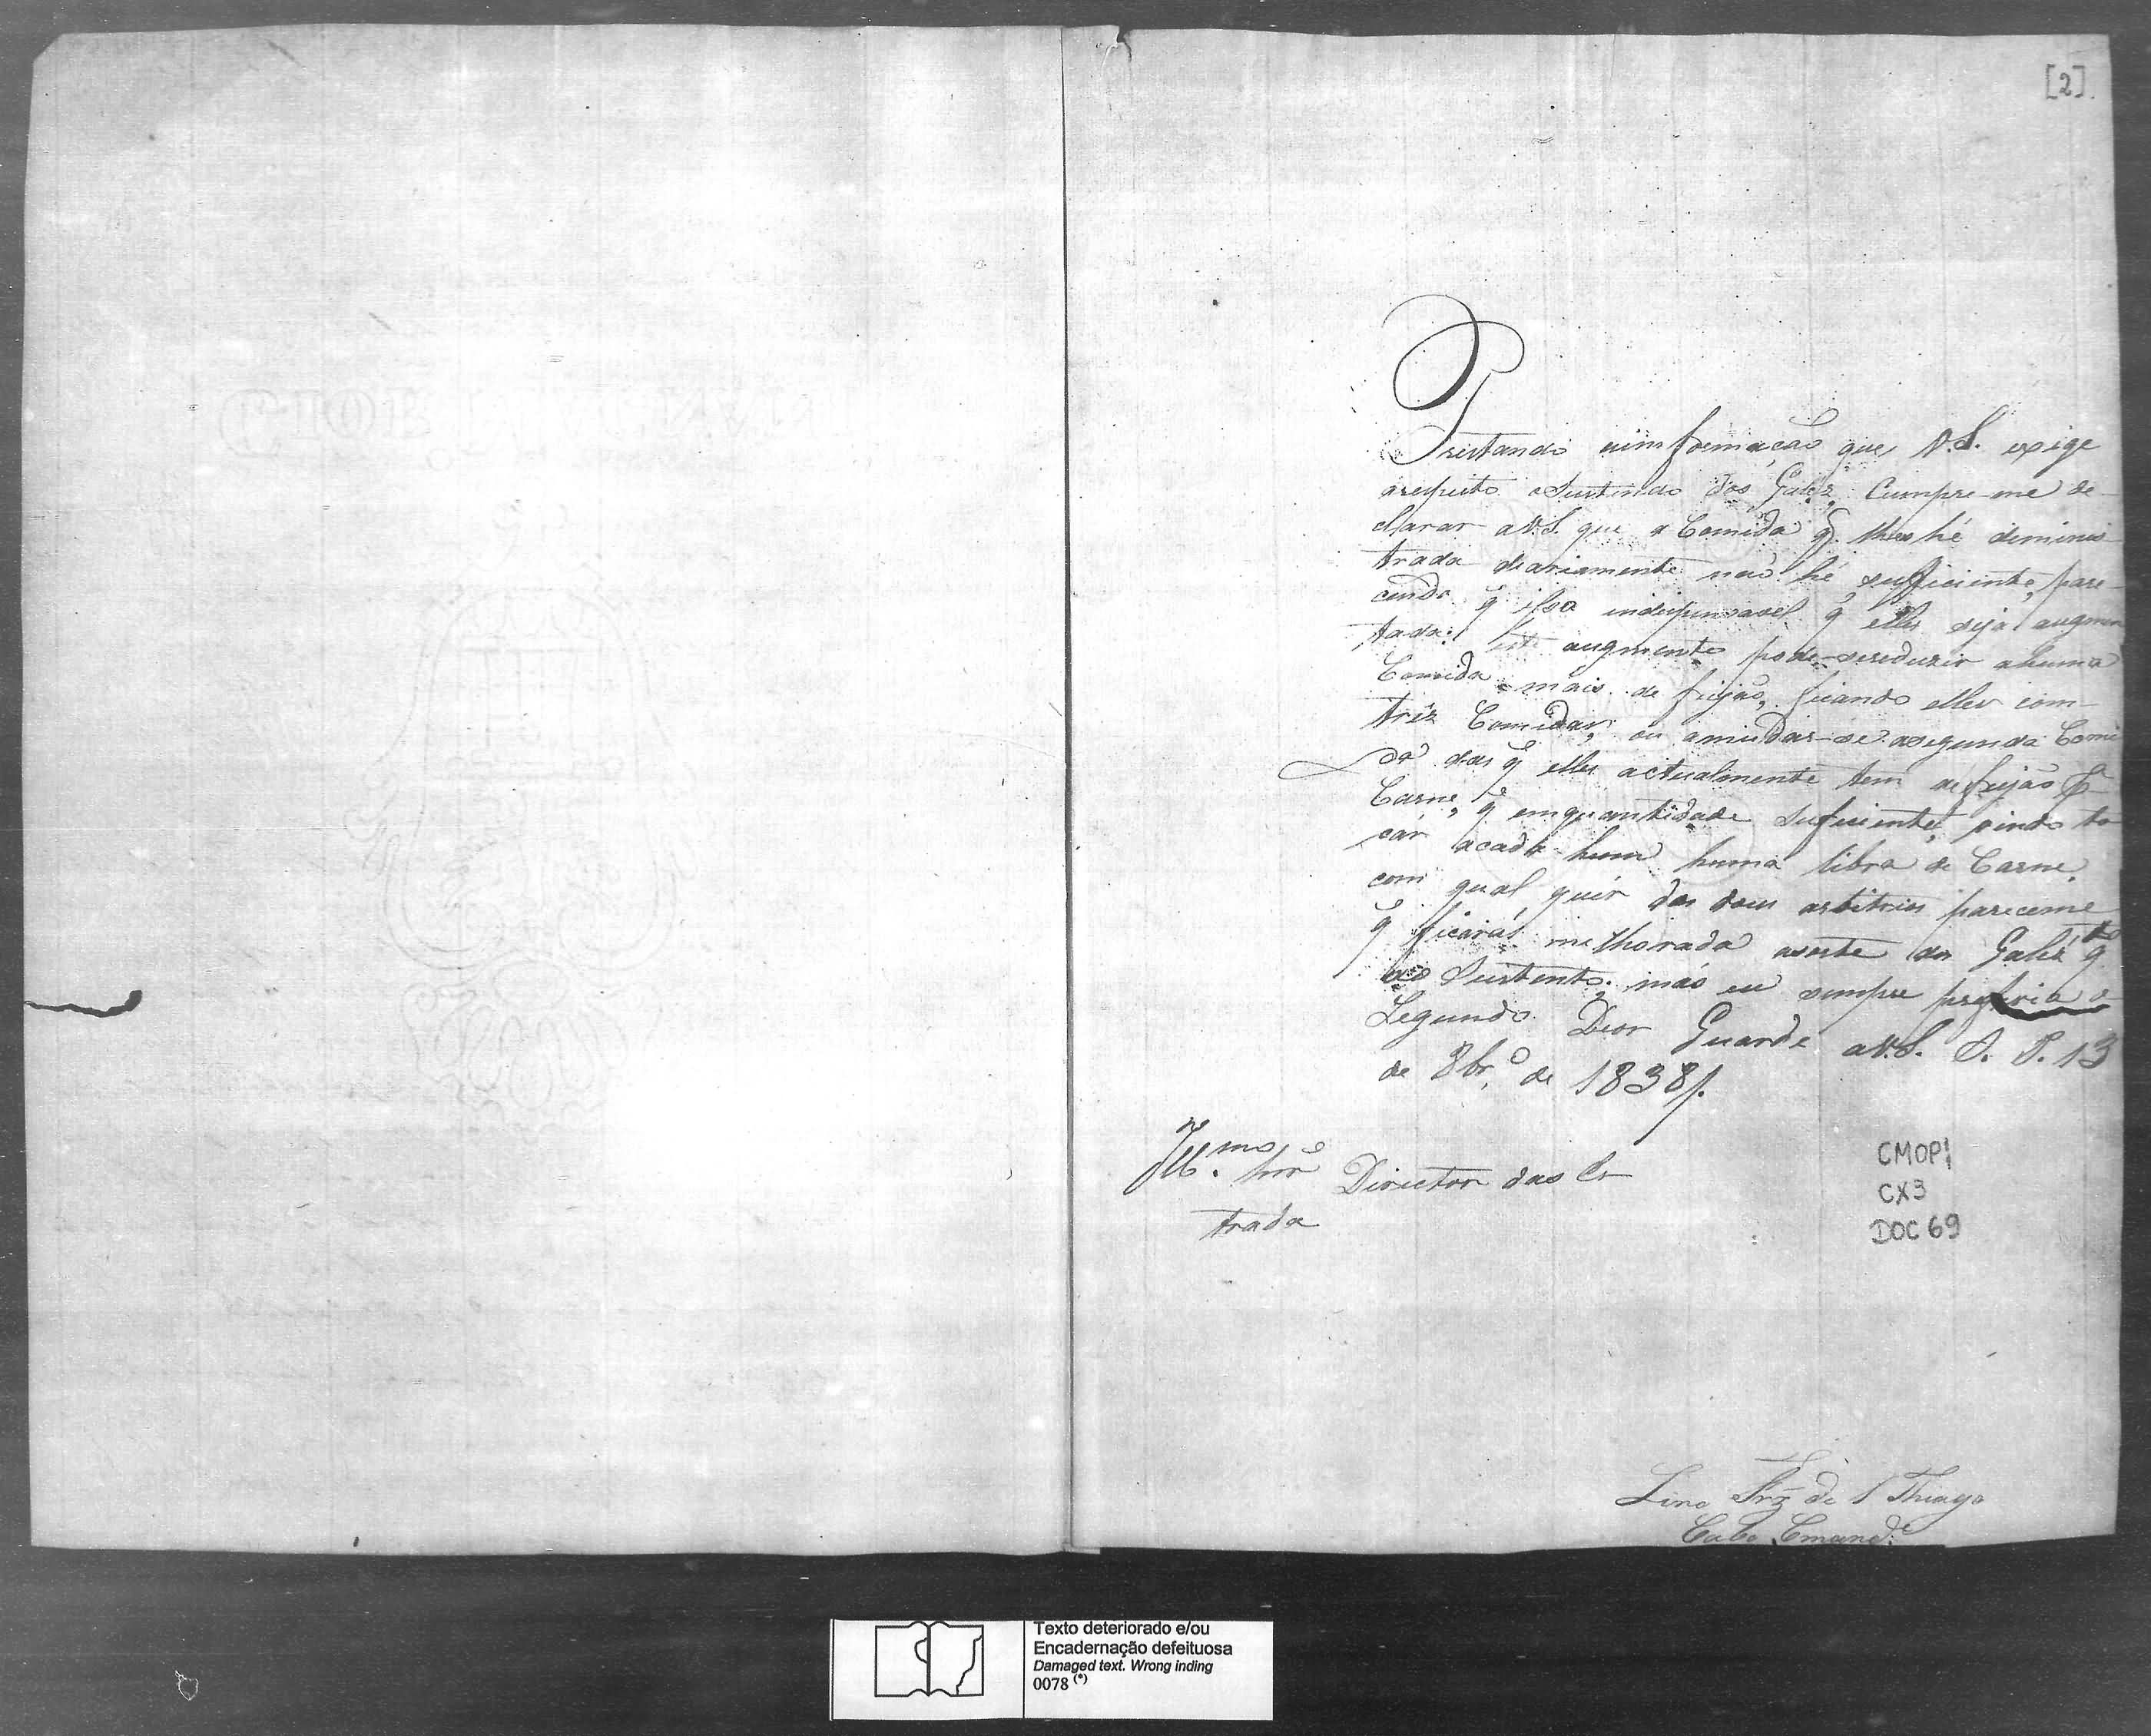 [2]
Prestando ainformação que V.S. exige
arespeito oSustendo dos Galez, Cumpre-me de-
clarar aV.S. que a Comida q̃ lhes hé deminis-
trada deariamente não hé sufficiente, pare-
cendo q̃ indespensavel q̃ elles seja augmen
tada. Este augmento pode-sereduzir ahuma
Comida mais de feijão, ficando elles com-
trêz Comidas, ou amudar-se asegunda Comi
da das q̃ elles actualmente tem de feijão
Carne, q̃ emquantidade suficiente, vindo to
car acada hum huma libra de Carne.
com qual quér dos dous arbitrios pareceme
q̃ ficará melhorada asorte dos Galéz q.to
ao Sustento. mas eu sempre preferia o
Segundo Deos Guarde aV.S. O. P. 13
de 8br.º de 1838/.
Ill.mo Snr Director das Es
trada
CMOP1
CX3
DOC 69
Lino Frz de S Thiago
Cabo Cmand.e
Texto deteriorado e/ou
Encadernação defeituosa
Damaged text. Wrong inding
0078 (*)